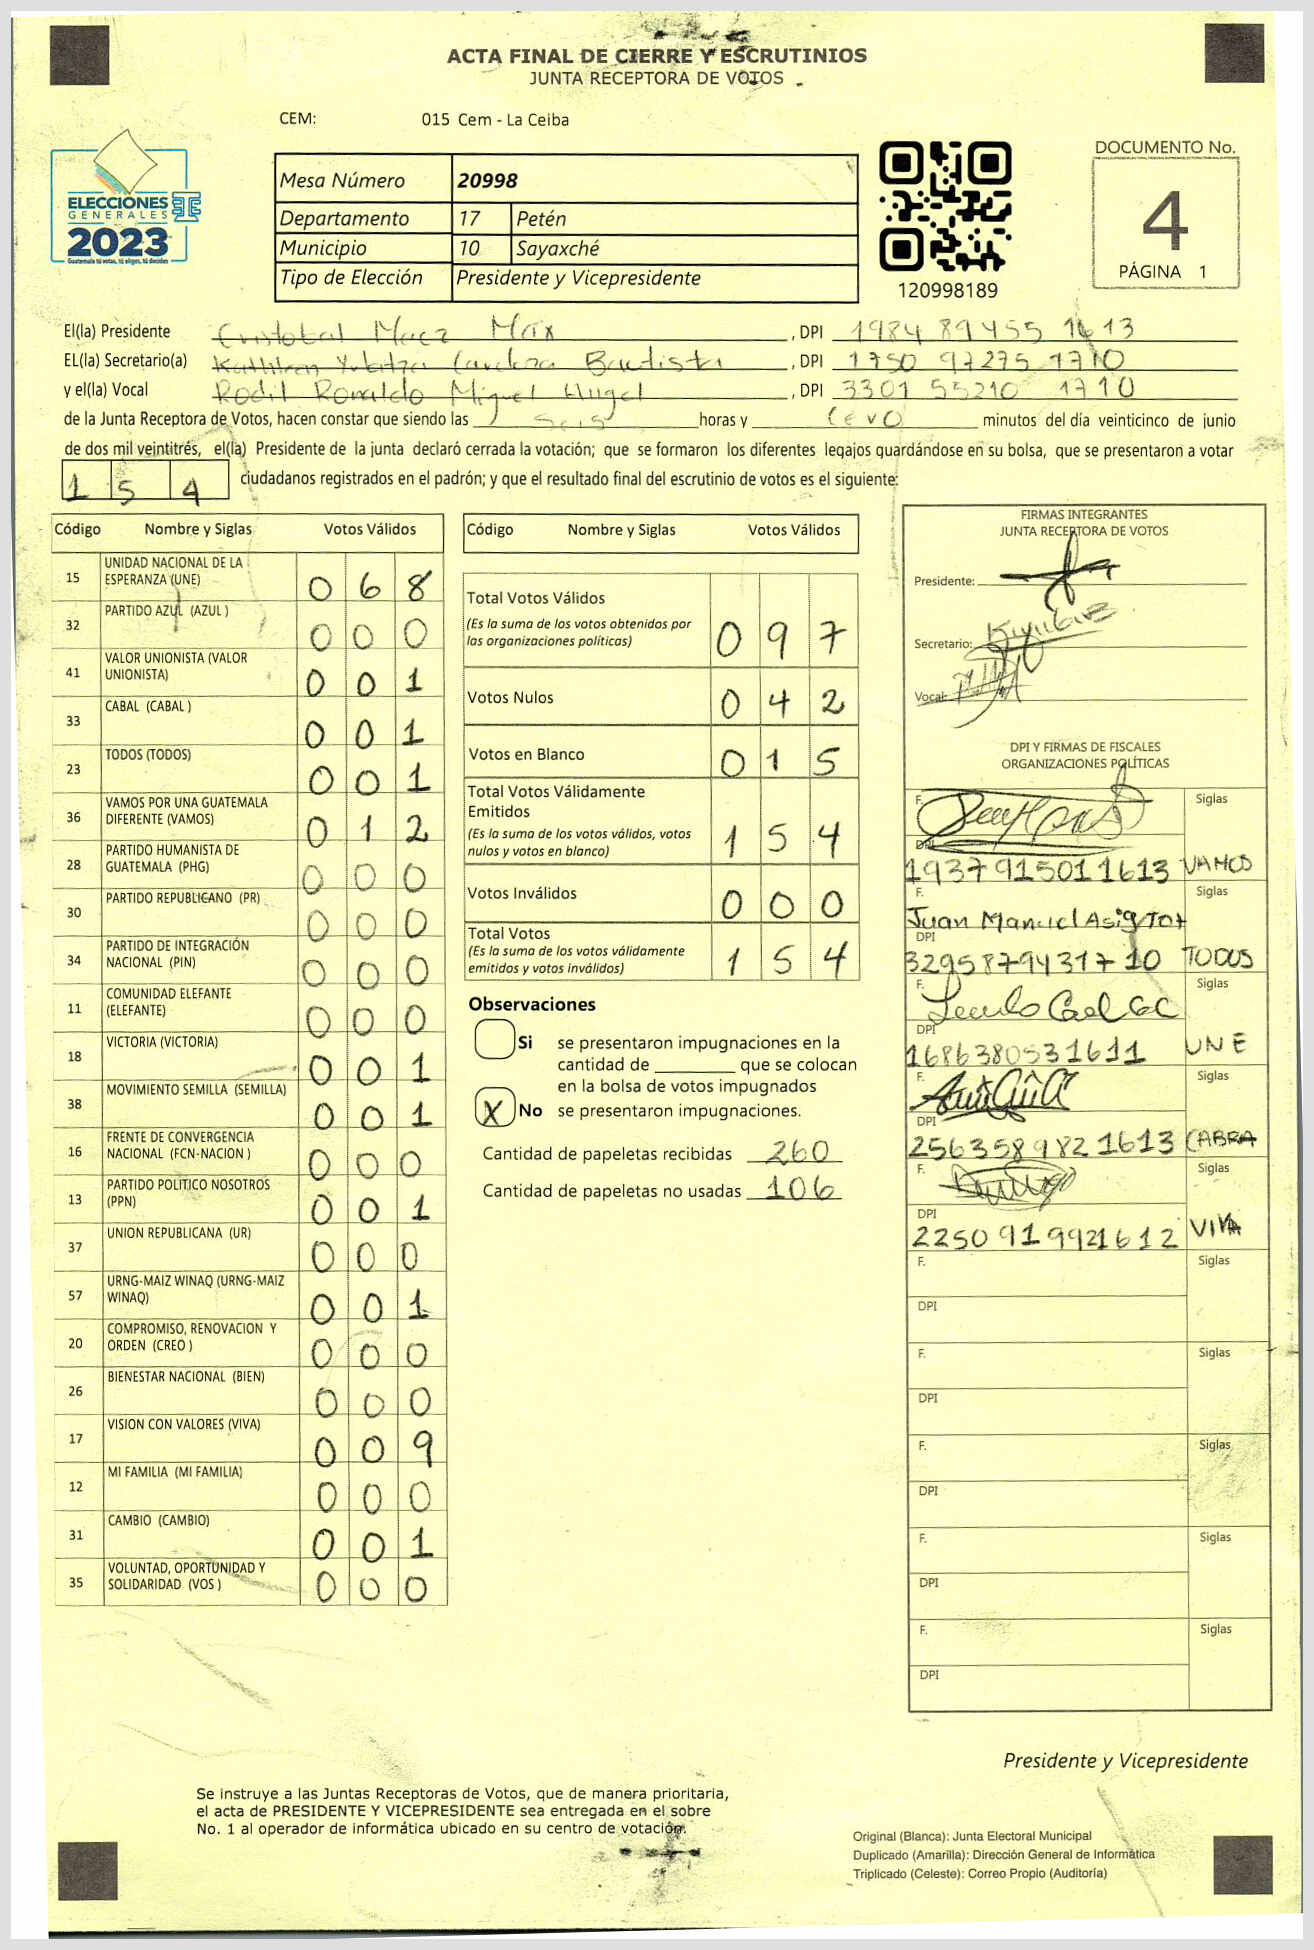 ACTA FINAL DE CIERRE Y ESCRUTINIOS
JUNTA RECEPTORA DE VOTOS
CEM: 015 Cem - La Ceiba
ELECCIONES
GENERALES
2023
Guatemala tú votas, tú eliges, tú decides
Mesa Número 20998
Departamento 17 Petén
Municipio 10 Sayaxché
Tipo de Elección Presidente y Vicepresidente
120998189
DOCUMENTO No.
4
PÁGINA 1
El(la) Presidente Cristobal Maez Max, DPI 1984 89455 1613
EL(la) Secretario(a) Kathleen Cardoza Bautista, DPI 1750 97275 1710
y el(la) Vocal Rodil Ronaldo Miguel Angel, DPI 3301 55210 1710
de la Junta Receptora de Votos, hacen constar que siendo las seis horas y cero minutos del día veinticinco de junio
de dos mil veintitrés, el(la) Presidente de la junta declaró cerrada la votación; que se formaron los diferentes legajos guardándose en su bolsa, que se presentaron a votar
154 ciudadanos registrados en el padrón; y que el resultado final del escrutinio de votos es el siguiente:
Código Nombre y Siglas Votos Válidos
15 UNIDAD NACIONAL DE LA ESPERANZA (UNE) 0 6 8
32 PARTIDO AZUL (AZUL ) 0 0 0
41 VALOR UNIONISTA (VALOR UNIONISTA) 0 0 1
33 CABAL (CABAL ) 0 0 1
23 TODOS (TODOS) 0 0 1
36 VAMOS POR UNA GUATEMALA DIFERENTE (VAMOS) 0 1 2
28 PARTIDO HUMANISTA DE GUATEMALA (PHG) 0 0 0
30 PARTIDO REPUBLICANO (PR) 0 0 0
34 PARTIDO DE INTEGRACIÓN NACIONAL (PIN) 0 0 0
11 COMUNIDAD ELEFANTE (ELEFANTE) 0 0 0
18 VICTORIA (VICTORIA) 0 0 1
38 MOVIMIENTO SEMILLA (SEMILLA) 0 0 1
16 FRENTE DE CONVERGENCIA NACIONAL (FCN-NACION ) 0 0 0
13 PARTIDO POLITICO NOSOTROS (PPN) 0 0 1
37 UNION REPUBLICANA (UR) 0 0 0
57 URNG-MAIZ WINAQ (URNG-MAIZ WINAQ) 0 0 1
20 COMPROMISO, RENOVACION Y ORDEN (CREO ) 0 0 0
26 BIENESTAR NACIONAL (BIEN) 0 0 0
17 VISION CON VALORES (VIVA) 0 0 9
12 MI FAMILIA (MI FAMILIA) 0 0 0
31 CAMBIO (CAMBIO) 0 0 1
35 VOLUNTAD, OPORTUNIDAD Y SOLIDARIDAD (VOS ) 0 0 0
Código Nombre y Siglas Votos Válidos
Total Votos Válidos 0 9 7
(Es la suma de los votos obtenidos por
las organizaciones políticas)
Votos Nulos 0 4 2
Votos en Blanco 0 1 5
Total Votos Válidamente
Emitidos 1 5 4
(Es la suma de los votos válidos, votos
nulos y votos en blanco)
Votos Inválidos 0 0 0
Total Votos 1 5 4
(Es la suma de los votos válidamente
emitidos y votos inválidos)
Observaciones
Si se presentaron impugnaciones en la
cantidad de ________ que se colocan
en la bolsa de votos impugnados
X No se presentaron impugnaciones.
Cantidad de papeletas recibidas 260
Cantidad de papeletas no usadas 106
FIRMAS INTEGRANTES
JUNTA RECEPTORA DE VOTOS
Presidente:
Secretario:
Vocal:
DPI Y FIRMAS DE FISCALES
ORGANIZACIONES POLÍTICAS
F. Siglas
DPI 1937915011613 VAMOS
F. Juan Manuel Asig Tot Siglas
DPI 3295879431710 TODOS
F. Siglas
DPI 1686380531611 UNE
F. Siglas
DPI 2563589821613 CABRA
F. Siglas
DPI 2250919921612 VIVA
F. Siglas
DPI
F. Siglas
DPI
F. Siglas
DPI
F. Siglas
DPI
F. Siglas
DPI
Presidente y Vicepresidente
Se instruye a las Juntas Receptoras de Votos, que de manera prioritaria,
el acta de PRESIDENTE Y VICEPRESIDENTE sea entregada en el sobre
No. 1 al operador de informática ubicado en su centro de votación.
Original (Blanca): Junta Electoral Municipal
Duplicado (Amarilla): Dirección General de Informática
Triplicado (Celeste): Correo Propio (Auditoría)